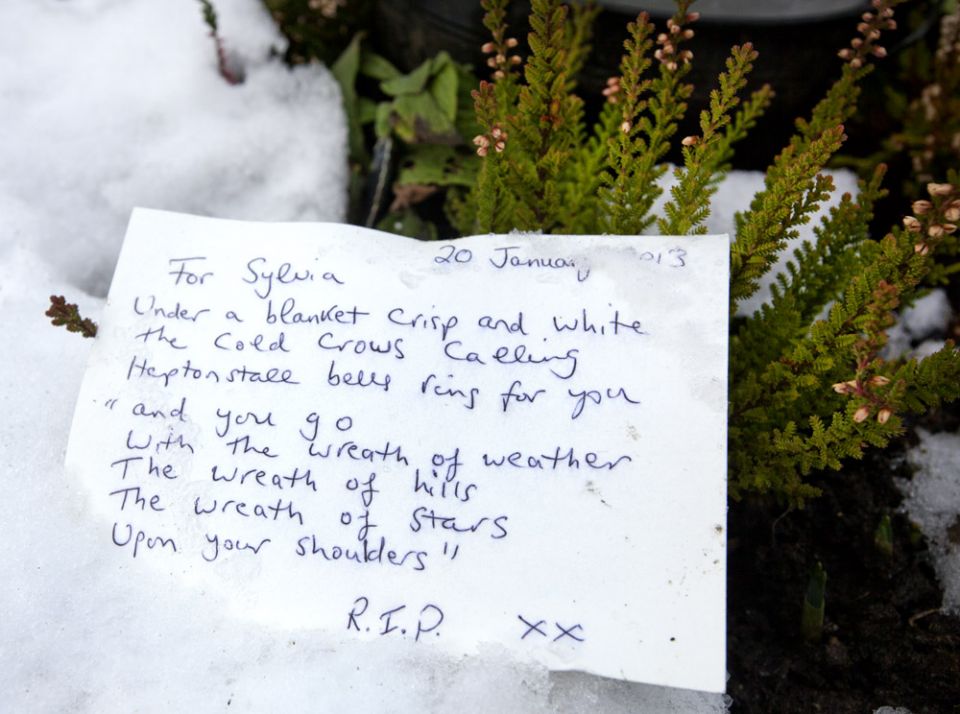 For Sylvia 20 January 2013
Under a blanket crisp and white
the cold crows calling
Heptonstall bells ring for you
"and you go
With the wreath of weather
The wreath of hills
The wreath of stars
Upon your shoulders"
R.I.P. xx